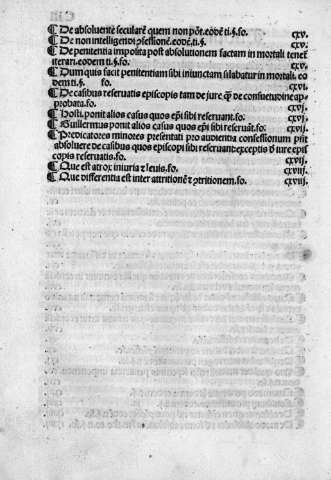 ¶ De absoluente secularē quem non põt. eodē ti. §. fo. cxv.
¶ De non intelligendi ꝯfessionē. eodē. ti. §. cxv.
¶ De penitentia imposita post absolutionem factam in mortali tenet̃
iterari. eodem ti. §. fo. cxv.
¶ Dum quis facit penitentiam sibi iniunctam si labatur in mortali. eo
dem ti. §. fo. cxvi.
¶ De casibus reseruatis episcopis tam de iure q̃ de consuetudine ap
probata. fo. cxvi.
¶ Hosti. ponit alios casus quos epi̅ sibi reseruant. fo. cxvi.
¶ Guillermus ponit alios casus quos epi̅ sibi reseruãt. fo. cxvij.
¶ Predicatores minores presentati pro audientia confessionum pn̅t
absoluere de casibus quos episcopi sibi reseruant: exceptis d̃ iure epis
copis reseruatis. fo. cxvij.
¶ Que est atrox iniuria ⁊ leuis. fo. cxviij.
¶ Que differentia est inter attritionē ⁊ ꝯtritionem. fo. cxviij.